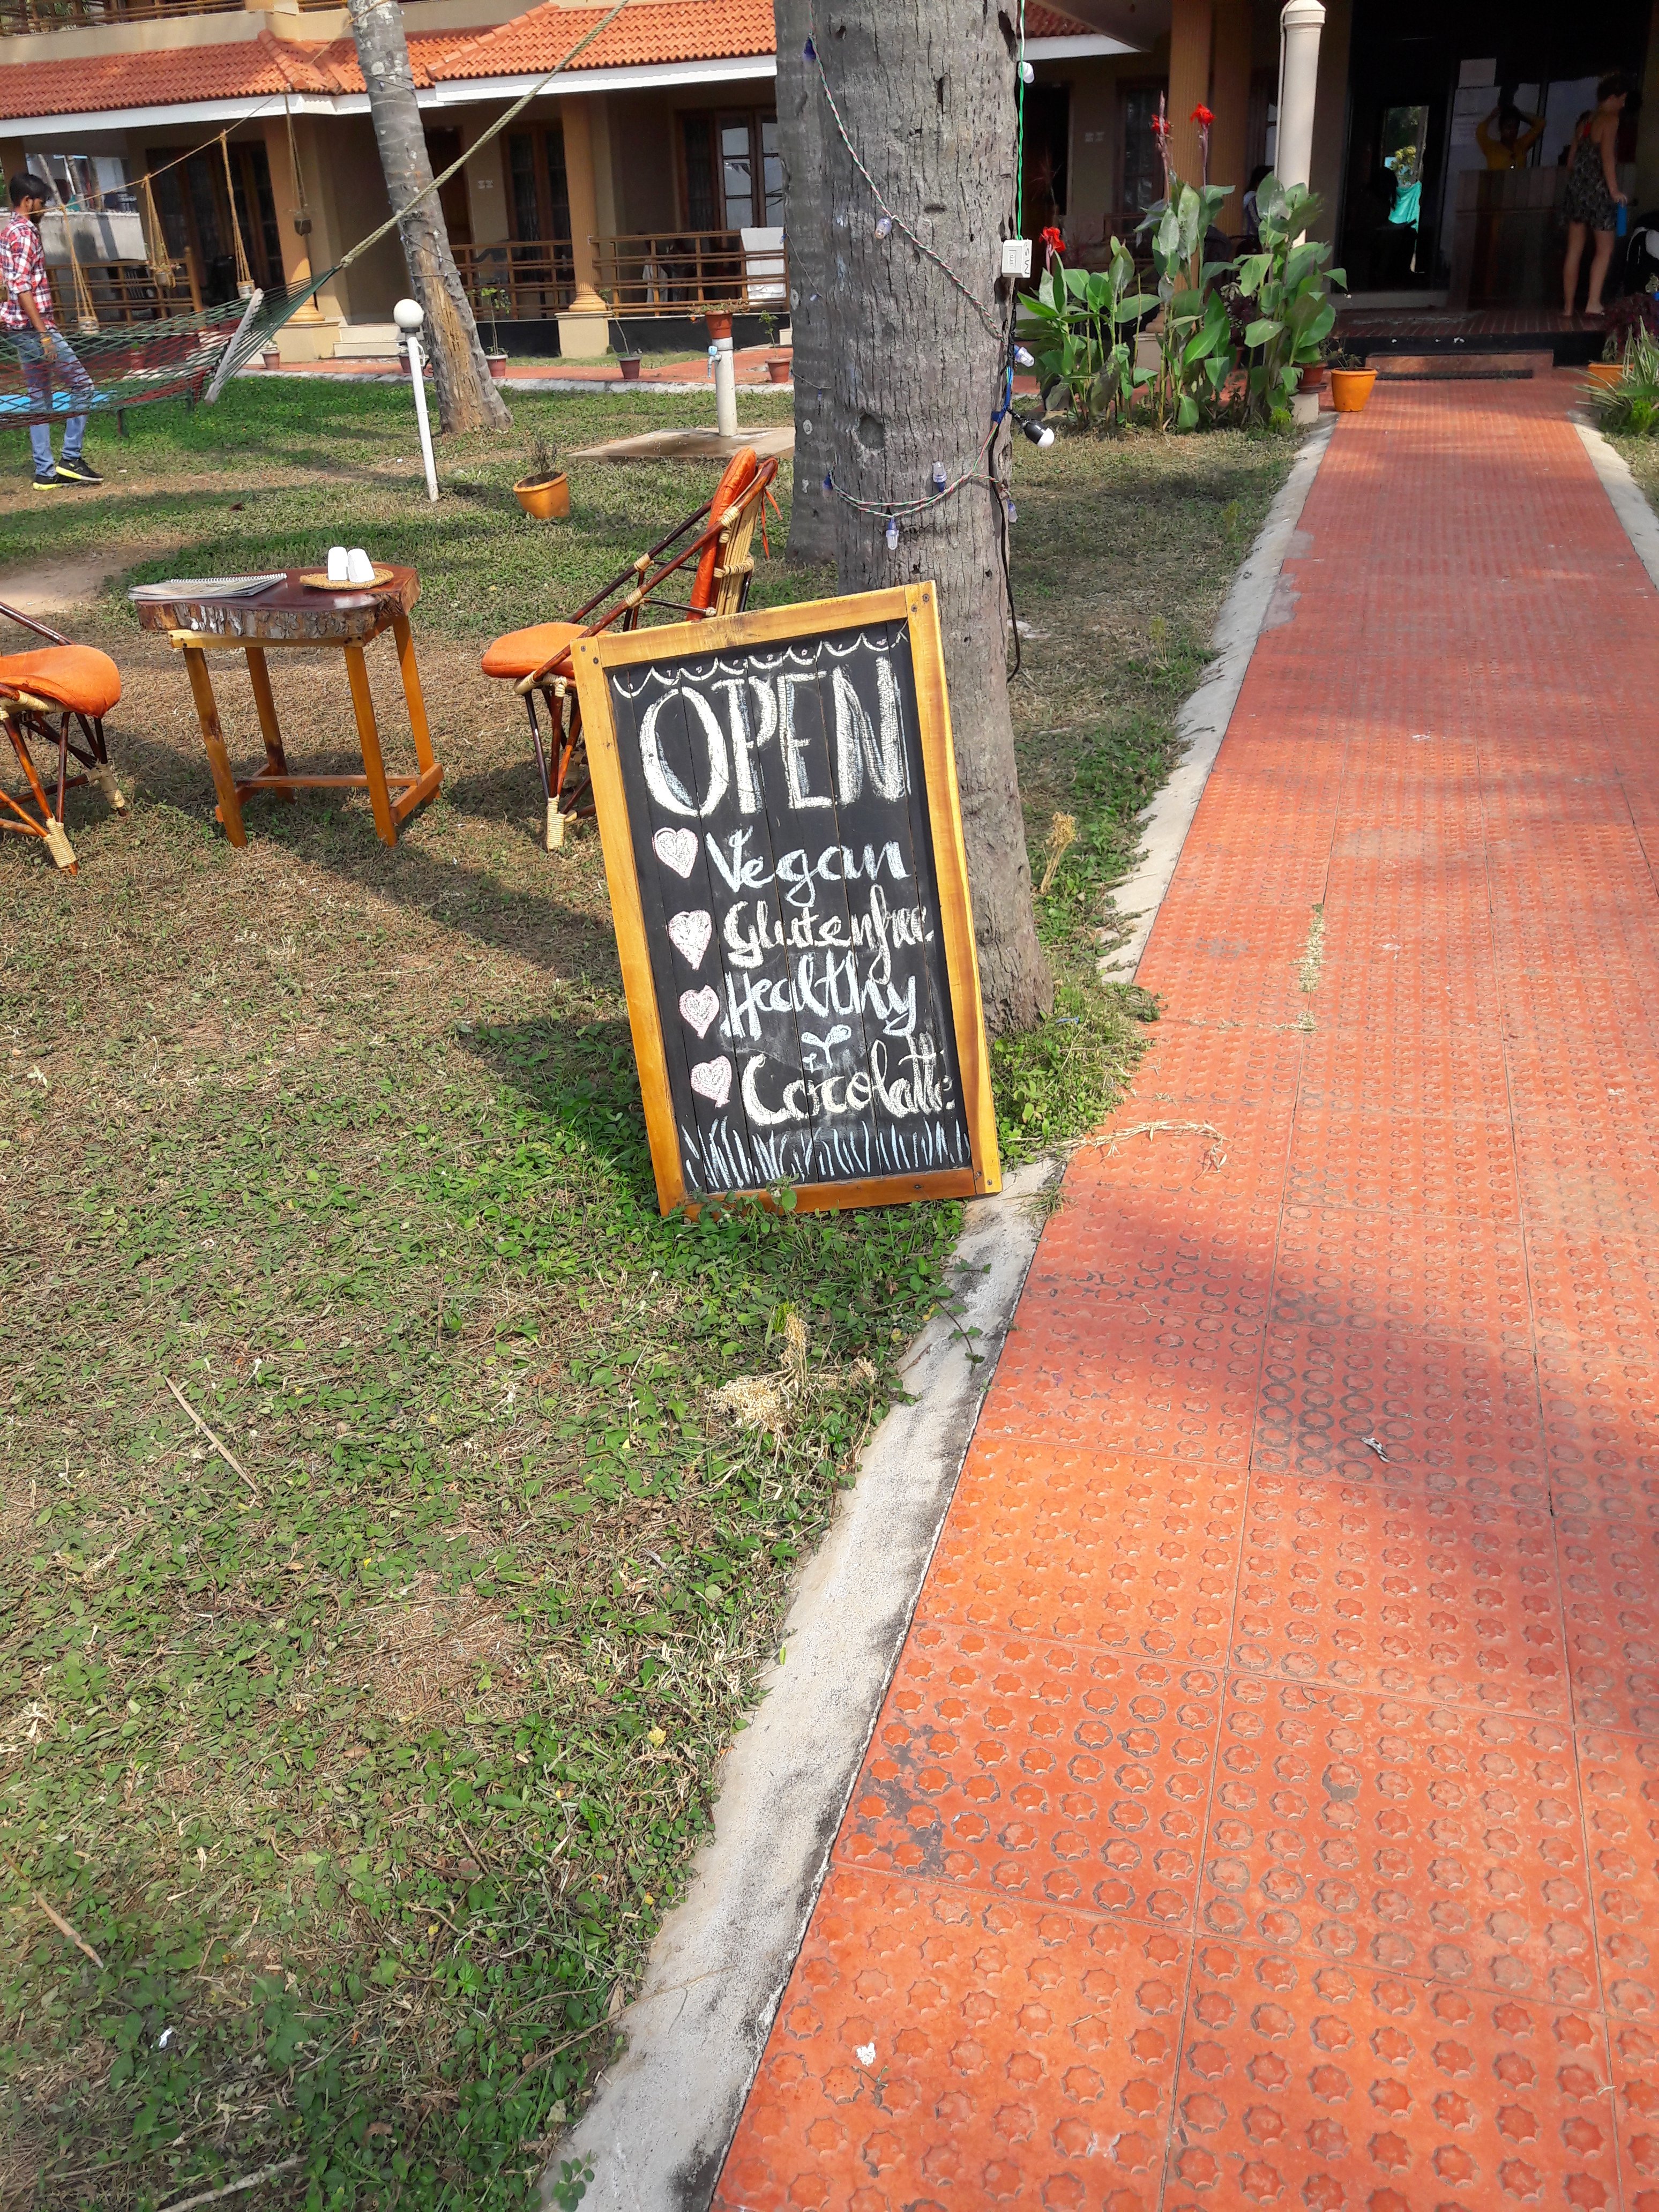 OPEN
Vegan
Glutenfree
Healthy
Cocolatte